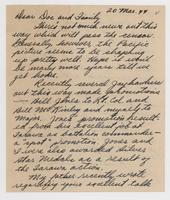 20 Mar. 44
Dear Doc and Family
Here's not much news out this
way which will pass the censor.
Generally however the Pacific
picture seems to be shaping
up pretty well. Hope it won't
be many more years till we
get home.
Recently several Jayhawkers
out this way made promotions
— Bill Jones to Lt. Col. and
Bill McKinley and myself to
Major. Jones' promotion result-
ed from his excellent job at
Tarawa as battalion commander —
a "spot" promotion. Jones and
I were also awarded Silver
Star Medals as a result of
the Tarawa action.
My father recently wrote
regarding your excellent talk